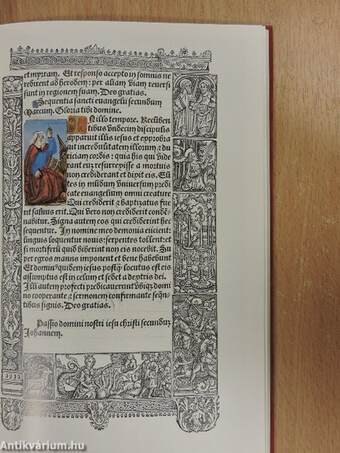 et myrram. Et responso accepto in somnis ne
redirent ad herodem: per aliam viam reuersi
sunt in regionem suam. Deo gratias.
Sequentia sancti euangelii secundum
Marcum. Gloria tibi domine.
In illo tempore. Recumben
tibus vndecim discipulis
apparuit illis iesus et exprobra
uit incredulitatem eorum et du
riciam cordis: quia his qui vide
rant eum resurrexisse a mortuis
non crediderant et dixit eis. Eun
tes in mundum vniuersum predi
cate euangelium omni creature.
Qui crediderit et baptizatus fue
rit saluus erit. Qui vero non crediderit condē
nabitur. Signa autem eos qui crediderint hec
sequentur. In nomine meo demonia eiicient:
linguis loquentur nouis: serpentes tollent: et
si mortiferū quid biberint non eis nocebit. Et
super egros manus imponent et bene habebunt
Et domin⁹ quidem iesus postq̄ locutus est eis
assumptus est in celum et sedet a dextris dei.
Illi autem profecti predicauerunt vbiq; domi
no cooperante et sermonem confirmante seq̄n
tibus signis. Deo gratias.
Passio domini nostri iesu christi secundum
Johannem.
Antikvárium.hu